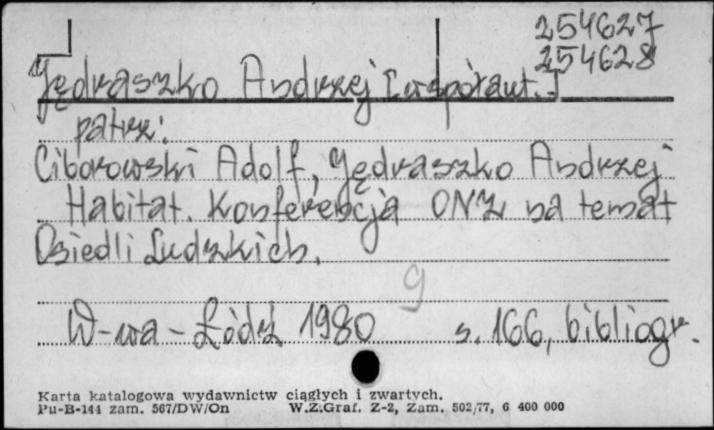 254627
254628
Jędraszko Andrzej [współaut.]
patrz:
Ciborowski Adolf, Jędraszko Andrzej
Habitat. Konferencja ONZ na temat
Osiedli Ludzkich.
9
W-wa - Łódź 1980 s. 166, bibliogr.
Karta katalogowa wydawnictw ciągłych i zwartych.
Pu-B-144 zam. 567/DW/On W.Z.Graf. Z-2, Zam. 502/77, 6 400 000